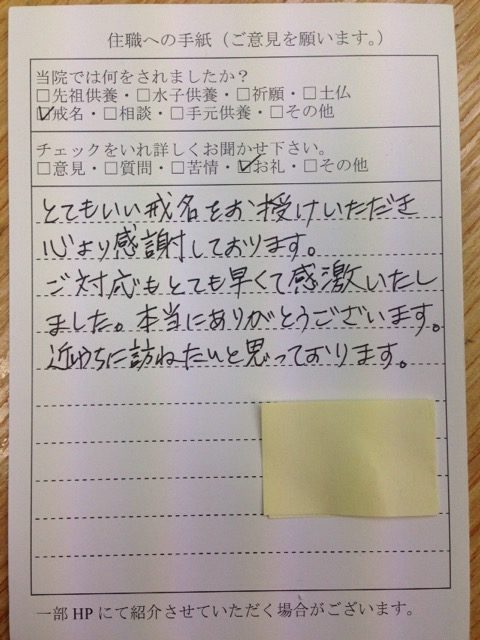 住職への手紙（ご意見を願います。）
当院では何をされましたか？
□先祖供養・□水子供養・□祈願・□土仏
☑戒名・□相談・□手元供養・□その他
チェックをいれ詳しくお聞かせ下さい。
□意見・□質問・□苦情・☑お礼・□その他
とてもいい戒名をお授けいただき
心より感謝しております。
ご対応もとても早くて感激いたし
ました。本当にありがとうございます。
近めちに訪ねたいと思っております。
一部HPにて紹介させていただく場合がございます。